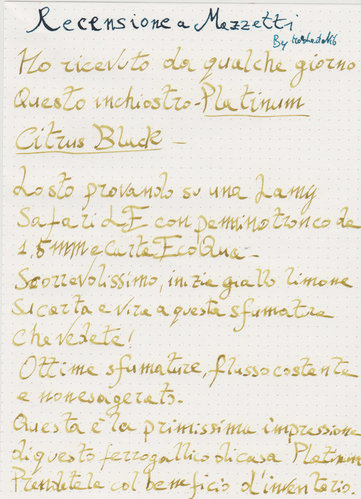 Recensione a Mazzetti
By
Ho ricevuto da qualche giorno
Questo inchiostro - Platinum
Citrus Black -
Lo sto provando su una Lamy
Safari LE con pennino tronco da
1,5 mm e Carta EcoQua -
Scorrevolissimo, inizia giallo limone
Su carta e vira a questa sfumatura
che vedete!
Ottime sfumature, flusso costante
e non esagerato.
Questa è la primissima impressione
di questo ferrogallico di casa Platinum
Prendetela col beneficio d'inventario